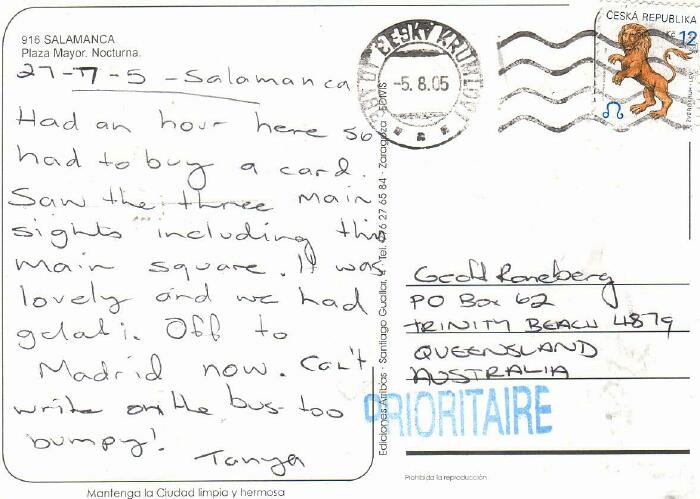 916 SALAMANCA
Plaza Mayor. Nocturna.
27-7-5 - Salamanca
Had an hour here so
had to buy a card.
Saw the three main
sights including this
main square. It was
lovely and we had
gelati. Off to
Madrid now. Can't
write on the bus too
bumpy!
Tanya
Mantenga la Ciudad limpia y hermosa
Ediciones Arribas - Santiago Guallar, 4 - Tel. 976 27 65 84 - Zaragoza - EDIVIS
ČESKÝ KRUMLOV 1
-5.8.05
ČESKÁ REPUBLIKA
Kč 12
Geoff Roneberg
PO Box 62
TRINITY BEACH 4879
QUEENSLAND
AUSTRALIA
PRIORITAIRE
Prohibida la reproducción